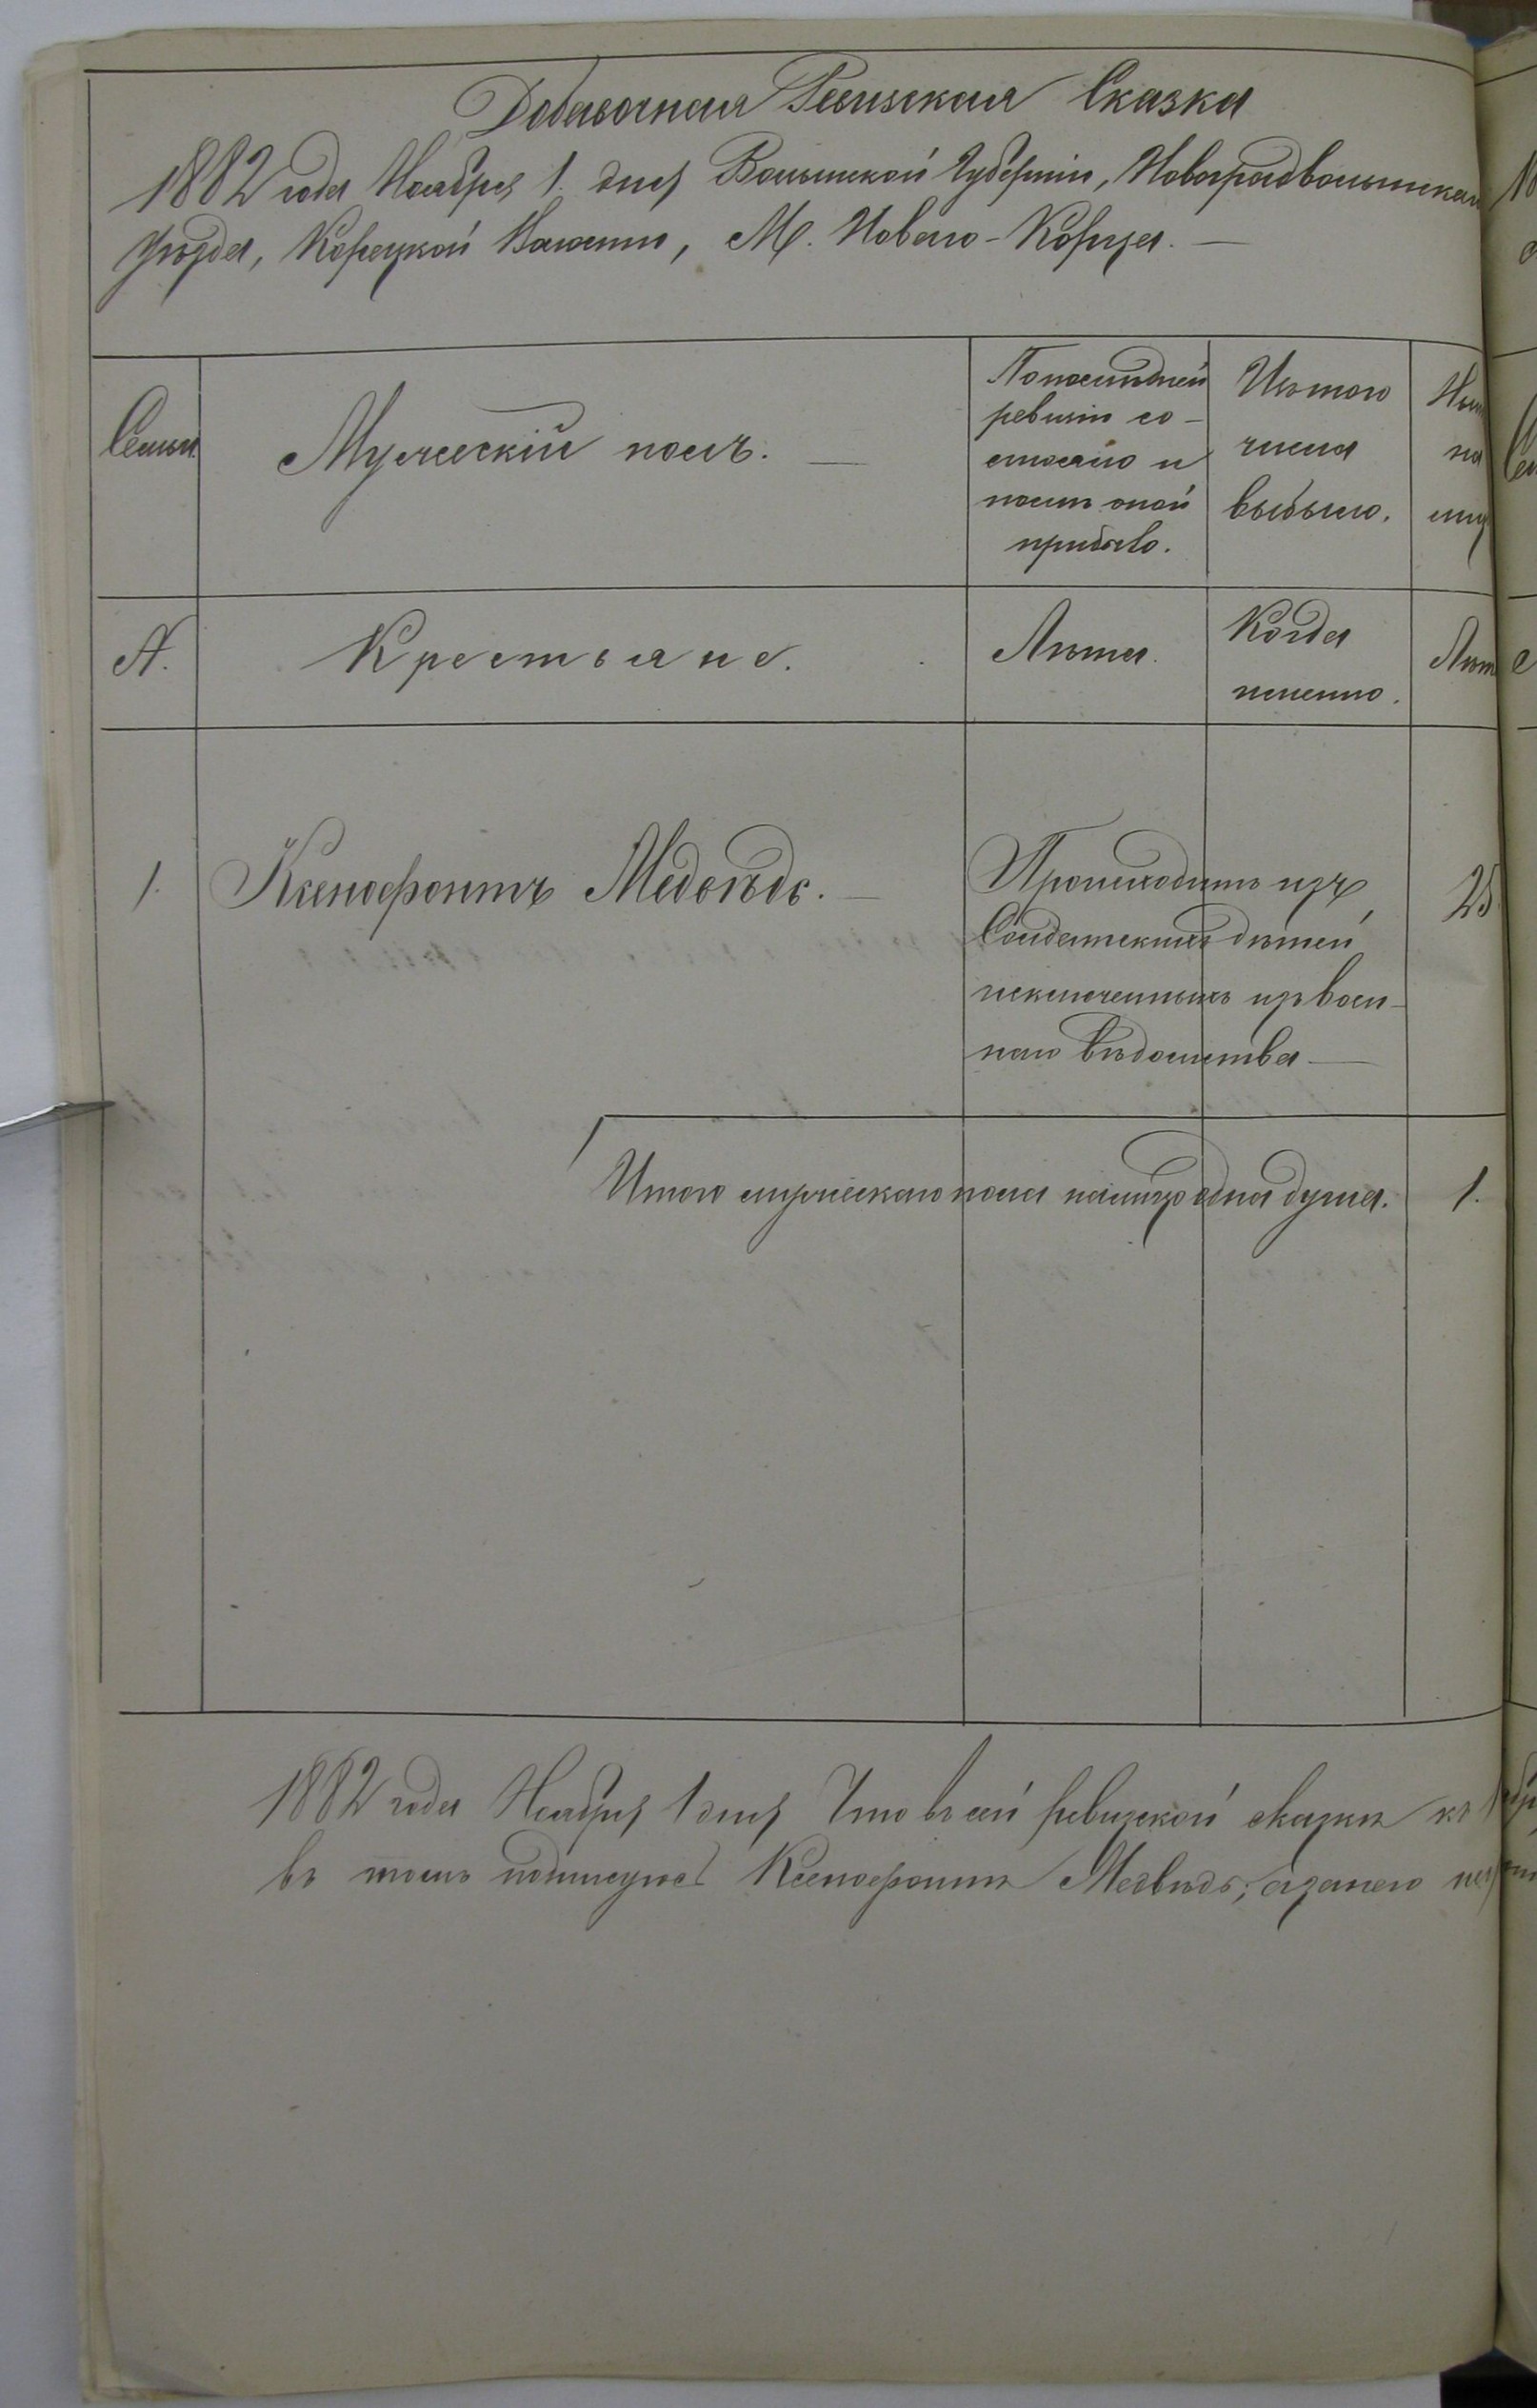 Добавочная Ревизская Сказка
1882 года Ноября 1. дня Волынской Губерніи, Новоградволынскаго
уѣзда, Корецкой Волости, М. Новаго-Корца. —
Семьи
Мужескій полъ. —
По послѣдней
ревизіи со-
стояло и
послѣ оной
прибыло.
Изъ того
числа
выбыло.
Ны
на
лиц
№.
Крестьяне.
Лѣта.
Когда
именно.
Лѣт
1.
Ксенофонтъ Медвѣдь. —
Происходитъ изъ
Солдатскихъ дѣтей,
исключенныхъ изъ воен-
наго вѣдомства —
25
Итого мужескаго пола налицо одна душа.
1.
1882 года Ноября 1 дня Что въ сей ревизской сказки
въ томъ подписуюсь Ксенофонтъ Медвѣдь, а за него